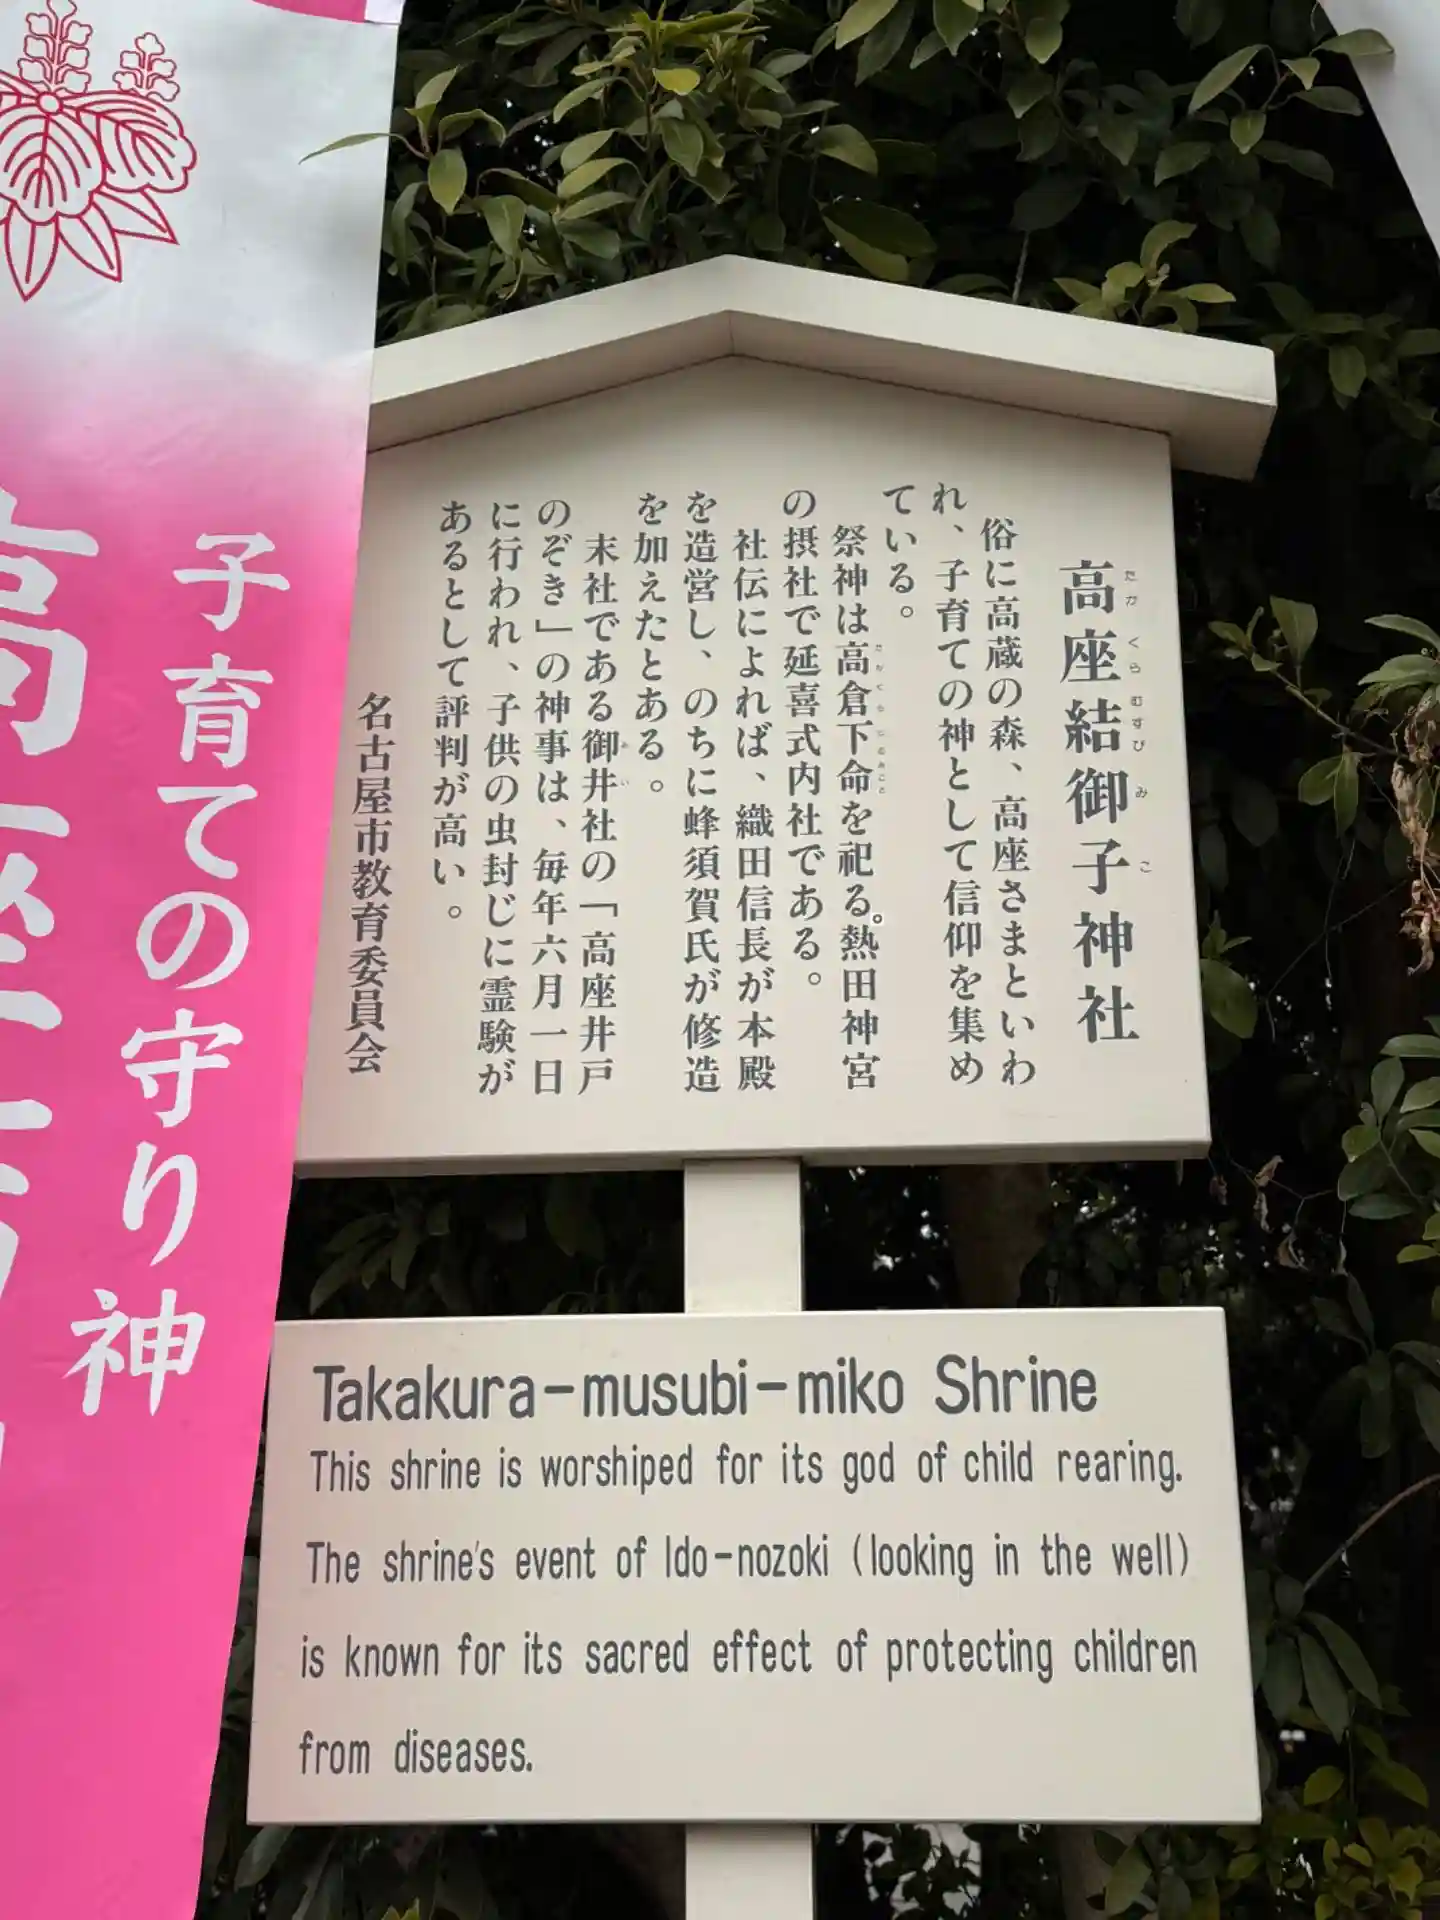 高座結御子神社
たかくらむすびみこ
俗に高蔵の森、高座さまといわ
れ、子育ての神として信仰を集め
ている。
祭神は高倉下命を祀る。熱田神宮
の摂社で延喜式内社である。
社伝によれば、織田信長が本殿
を造営し、のちに蜂須賀氏が修造
を加えたとある。
末社である御井社の「高座井戸
のぞき」の神事は、毎年六月一日
に行われ、子供の虫封じに霊験が
あるとして評判が高い。
名古屋市教育委員会
子育ての守り神
高座
Takakura-musubi-miko Shrine
This shrine is worshiped for its god of child rearing.
The shrine's event of Ido-nozoki (looking in the well)
is known for its sacred effect of protecting children
from diseases.